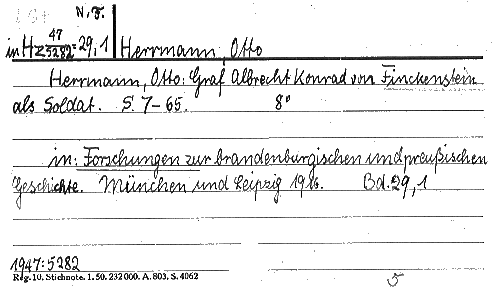 N.F.
in Hz 47/5282=29,1 Herrmann, Otto
Herrmann, Otto: Graf Albrecht Konrad von Finckenstein
als Soldat. S. 7-65. 8°
in: Forschungen zur brandenburgischen und preußischen
Geschichte. München und Leipzig 1916. Bd. 29,1
1947:5282
Rég. 10. Stichnote. 1. 50. 232000. A. 803. S. 4062
5